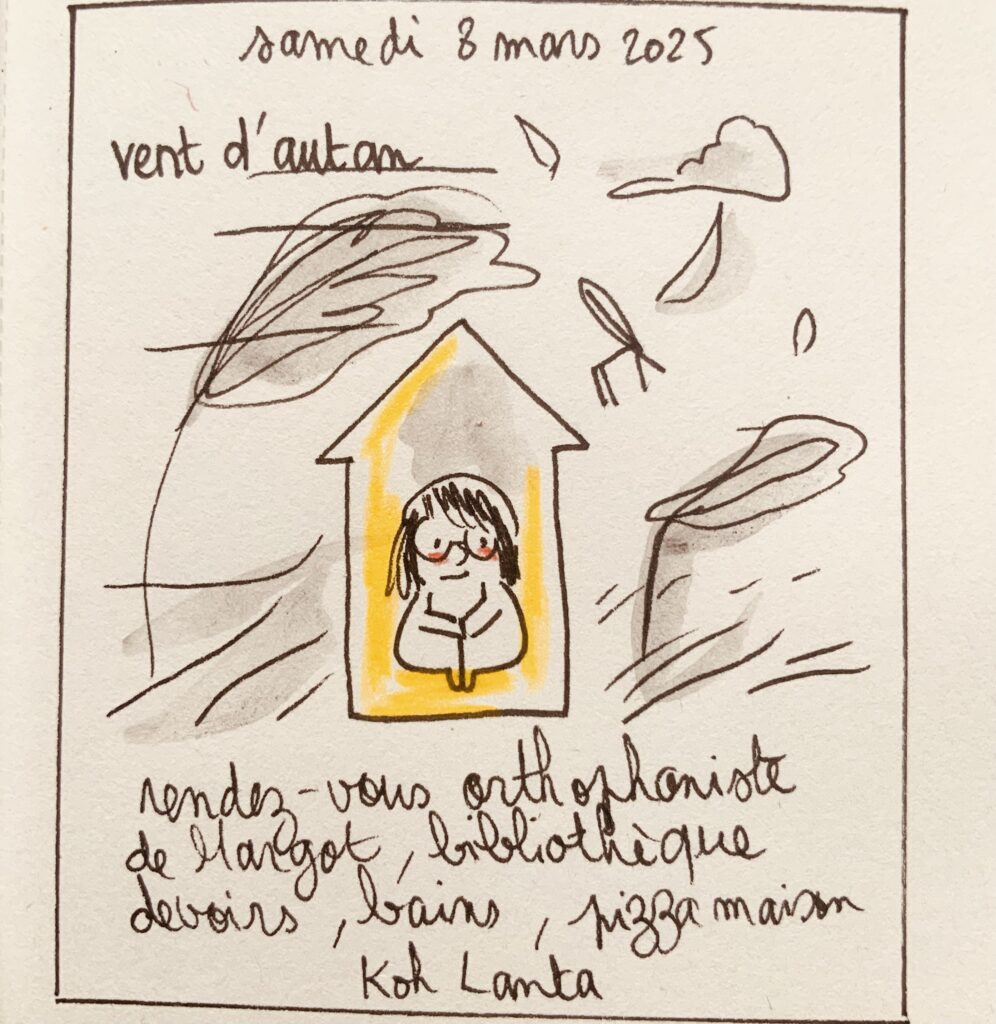 samedi 8 mars 2025
vent d'autan
rendez-vous orthophoniste
de Margot, bibliothèque
devoirs, bains, pizza maison
Koh Lanta